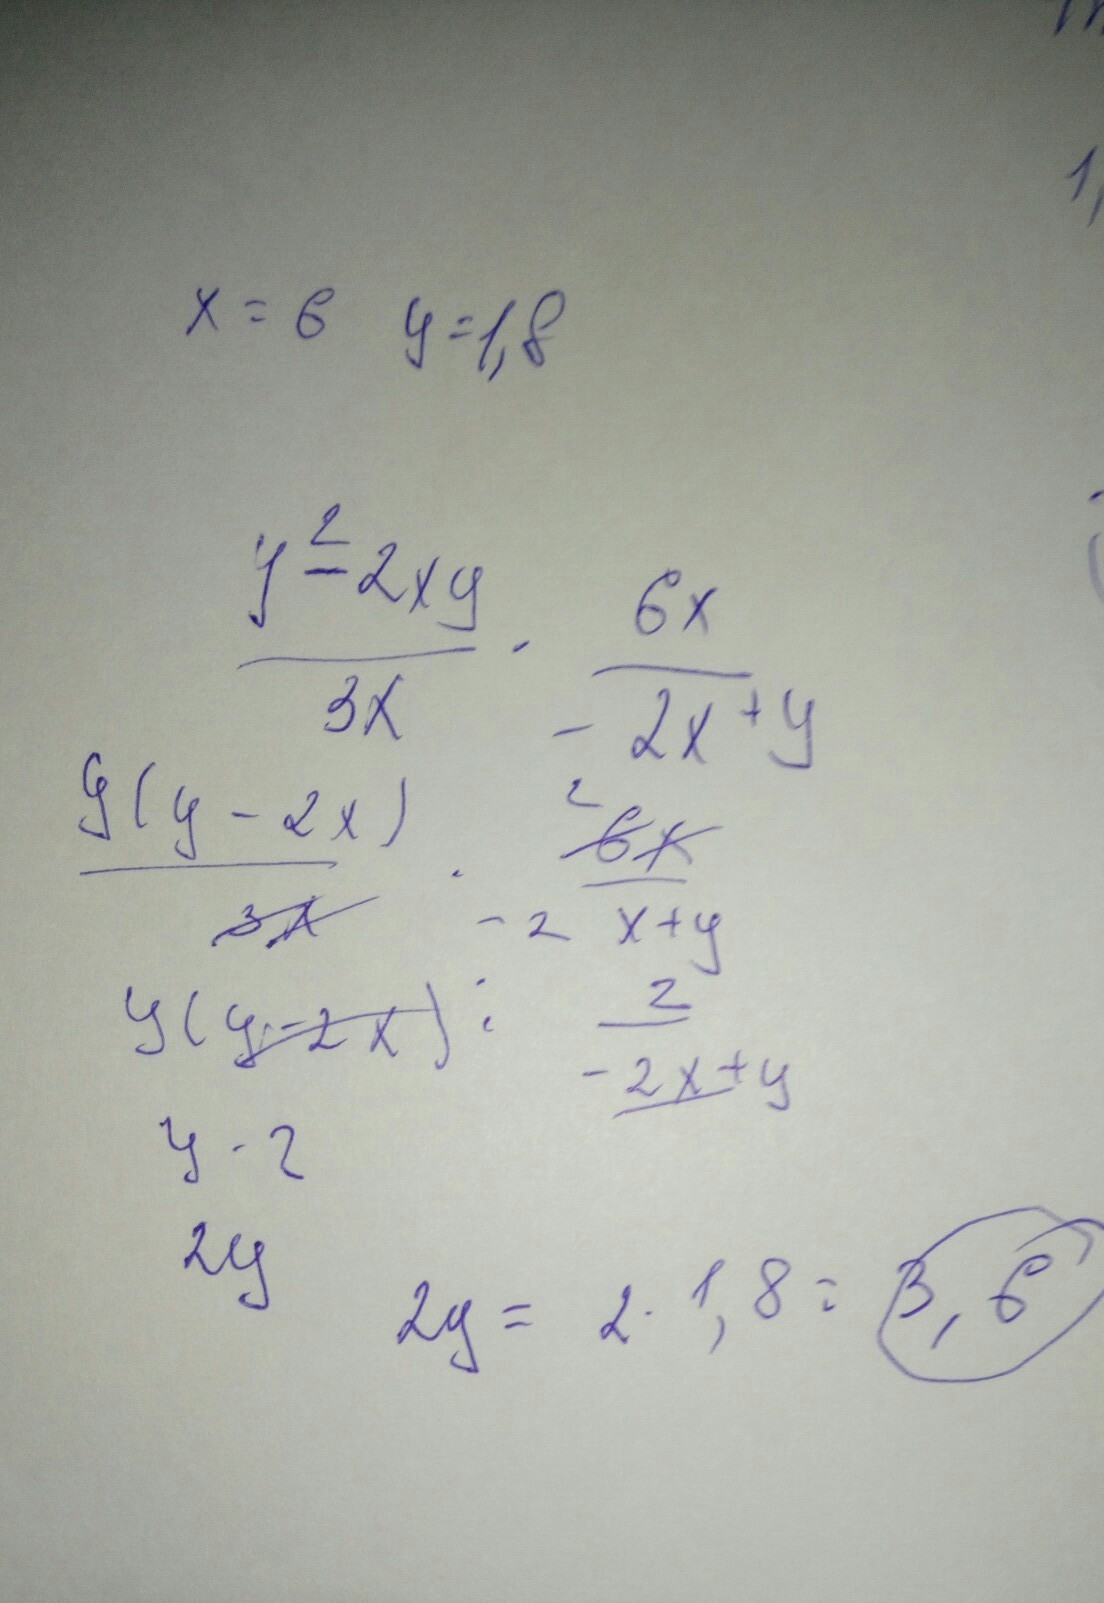 x = 6 y = 1,8
y² - 2xy / 3x · 6x / -2x + y
y(y - 2x) / 3x · 2 6x / -2 x + y
y(y - 2x) : 2 / -2x + y
y · 2
2y
2y = 2 · 1,8 = 3,6
1,